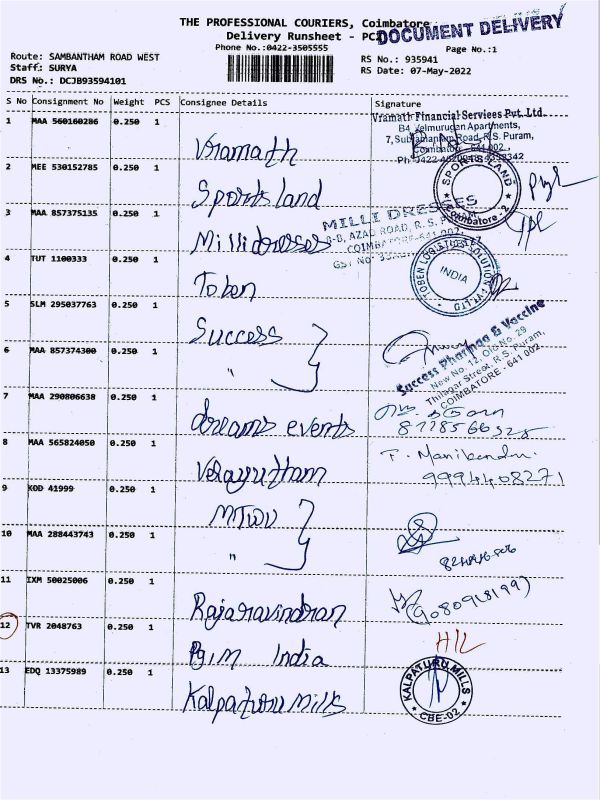 THE PROFESSIONAL COURIERS, Coimbatore
DOCUMENT DELIVERY
Delivery Runsheet - PCI
Phone No.:0422-3505555
Page No.:1
Route: SAMBANTHAM ROAD WEST
Staff: SURYA
DRS No.: DCJB93594101
RS No.: 935941
RS Date: 07-May-2022
S No Consignment No Weight PCS Consignee Details Signature
1 MAA 560160286 0.250 1 Vramath
Vramath Financial Services Pvt. Ltd.
B4 Velmurugan Apartments,
7, Subramaniam Road, R.S. Puram,
Coimbatore - 641 002
2 MEE 530152785 0.250 1 Sports land
SPORTS LAND
Coimbatore - 2
3 MAA 857375135 0.250 1 Milli dresses
MILLI DRESSES
AZAD ROAD, R. S.
COIMBATORE-641 002
GST No
4 TUT 1100333 0.250 1 Toben
TOBEN LOGISTICS SOLUTION PVT.LTD
INDIA
5 SLM 295037763 0.250 1 Success
6 MAA 857374300 0.250 1 "
Success Pharmaa & Vaccine
New No. 12, Old No. 29
Thilagar Street, R.S. Puram,
COIMBATORE - 641 002
7 MAA 290806638 0.250 1 dreams events
8 MAA 565824050 0.250 1 Velayutham
9994408271
9 KOD 41999 0.250 1 MTWU
10 MAA 288443743 0.250 1 "
11 IXM 50025006 0.250 1 Rajaravindran
12 TVR 2048763 0.250 1 Pgim India
13 EDQ 13375989 0.250 1 Kalpaturu mills
KALPATURU MILLS
CBE-02